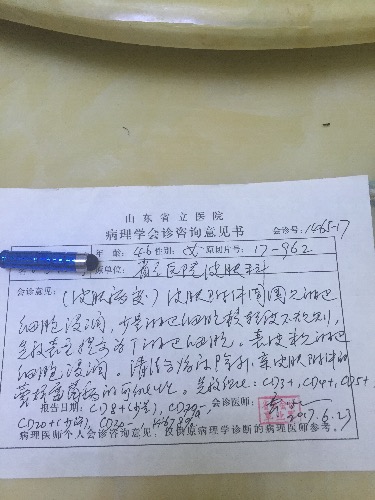 山东省立医院
病理学会诊咨询意见书 会诊号: 1465-17
年 龄: 46 性别: 女 原切片号: 17-962
原单位: 省立医院皮肤科
会诊意见: (皮肤活检) 皮肤附件周围见淋巴
细胞浸润, 少量淋巴细胞核轻度不规则,
免疫表型提示为T淋巴细胞。表皮较淋巴
细胞浸润。请结合临床除外亲皮肤附件的
蕈样霉菌病的可能性。免疫组化: CD3+, CD4+, CD5+
报告日期: CD8+(少量), CD79a-, 会诊医师:
CD20+(少量), CD20-, Ki67 2017.6.23
病理医师个人会诊咨询意见, 仅供原病理学诊断的病理医师参考。